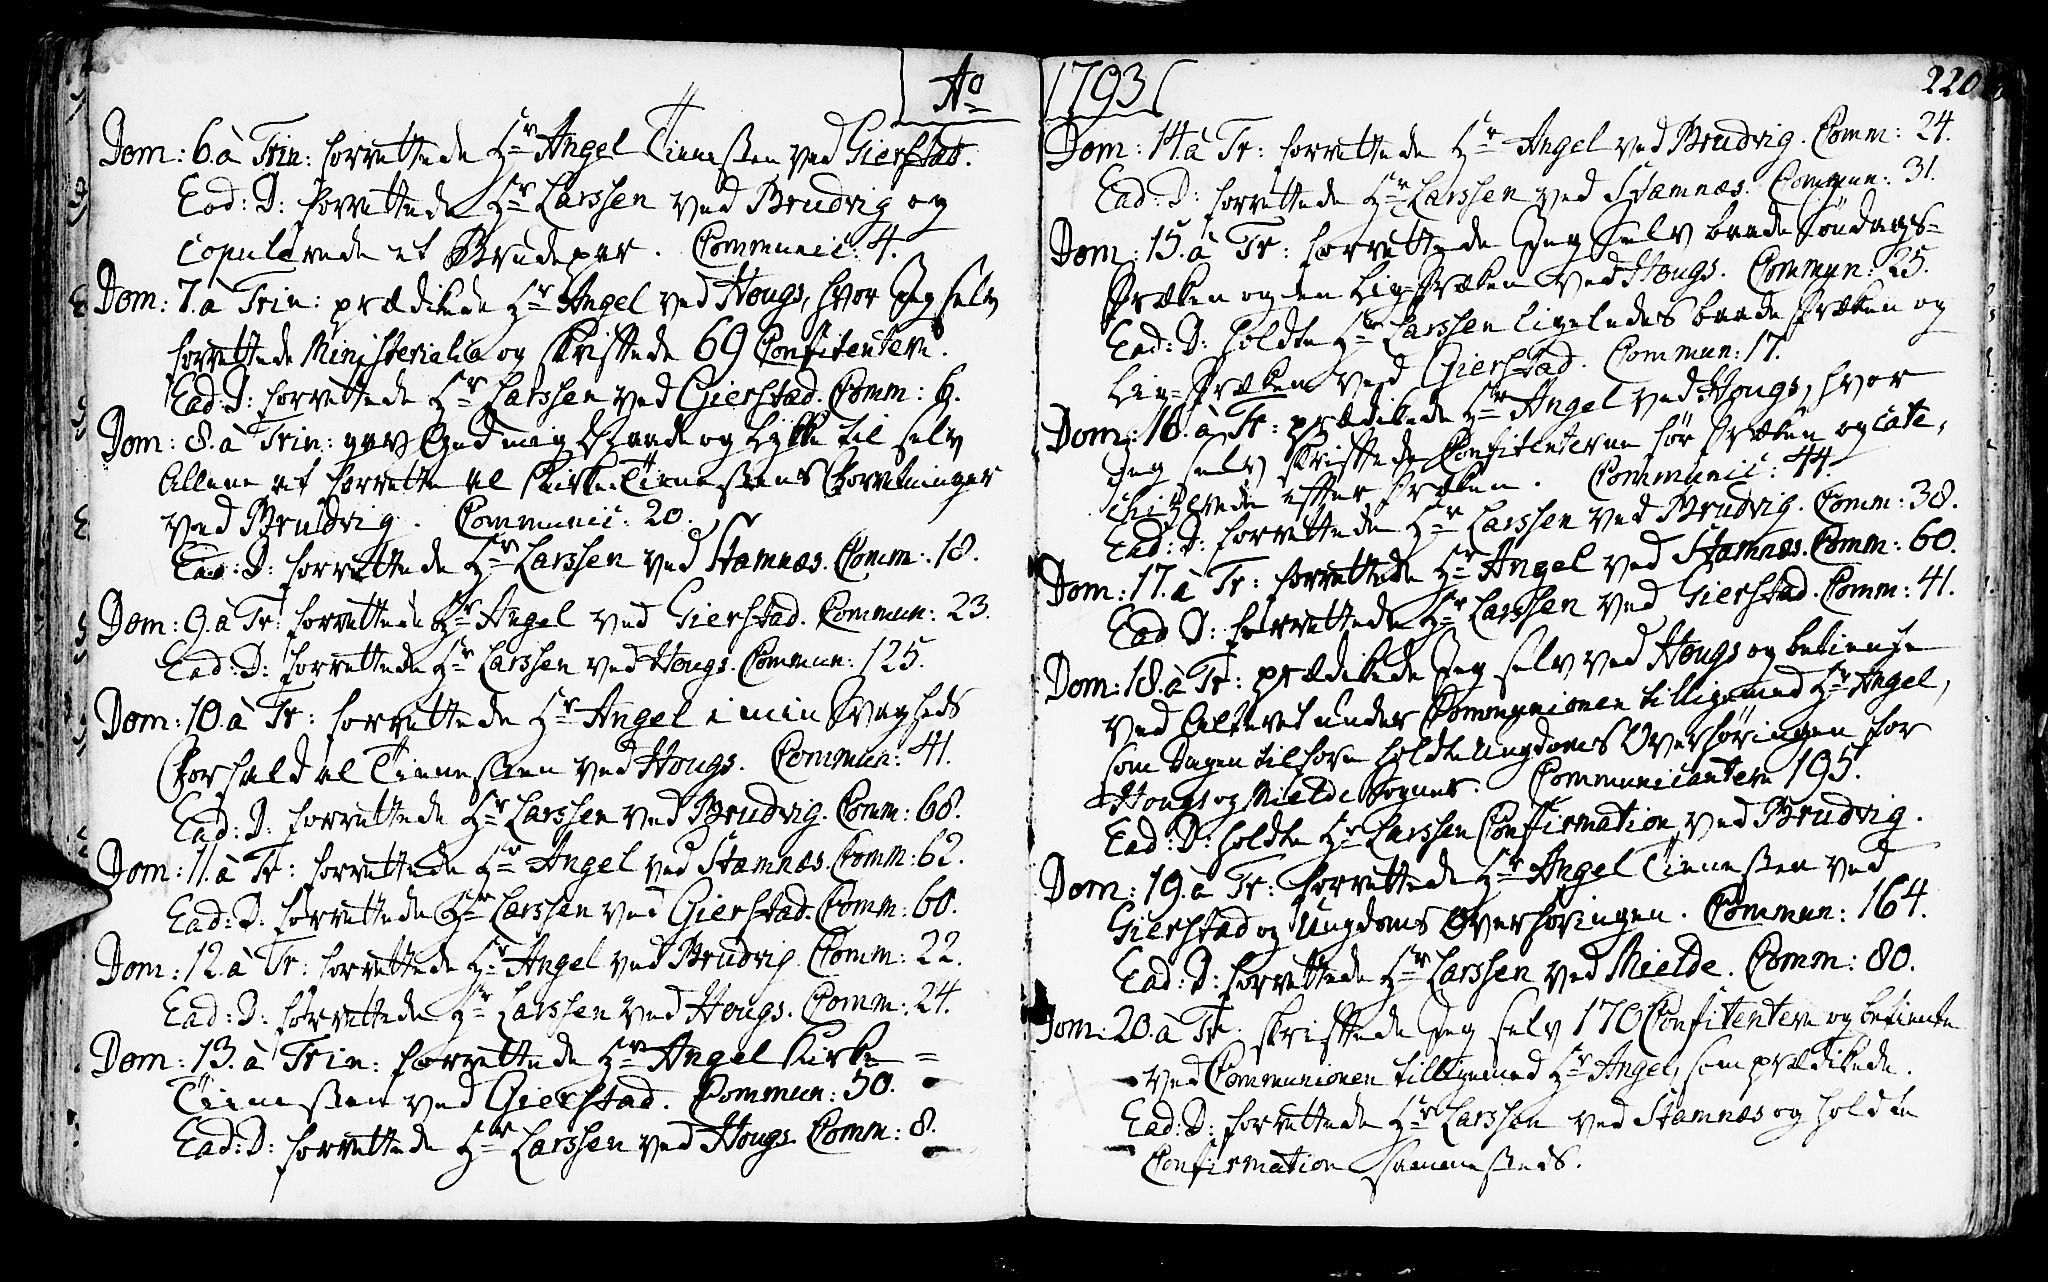 Ao
Dom: 6. à Trin: forrettede Hr Angel Tienesten ved Gierstad.
Ead: D: forrettede Hr Larssen ved Brudvig og
copulerede et Brudepar. Communic: 4.
Dom: 7. à Trin: prædikede Hr Angel ved Hougs, hvor Jeg selv
forrettede Ministerialia og skriftede 69 Confitentere.
Ead: D: forrettede Hr Larssen ved Gierstad. Comm: 6.
Dom: 8. à Trin: gav Gud mig Naade og Lykke til selv
Allene at forrette al Kirke-Tienestens Forretninger
ved Brudvig. Communic: 20.
Ead: D: forrettede Hr Larssen ved Stamnæs. Comm: 18.
Dom: 9. à Tr: forrettede Hr Angel ved Gierstad. Commun: 23.
Ead: D: forrettede Hr Larssen ved Hougs. Commun: 125.
Dom: 10. à Tr: forrettede Hr Angel i min Svagheds
Forfald al Tienesten ved Hougs. Commun: 41.
Ead: D: forrettede Hr Larssen ved Brudvig. Comm: 68.
Dom: 11. à Tr: forrettede Hr Angel ved Stamnæs. Comm: 62.
Ead: D: forrettede Hr Larssen ved Gierstad. Comm: 60.
Dom: 12. à Tr: forrettede Hr Angel ved Brudvig. Comm: 22.
Ead: D: forrettede Hr Larssen ved Hougs. Comm: 24.
Dom: 13. à Trin: forrettede Hr Angel Kirke=
Tienesten ved Gierstad. Commun: 50.
Ead: D: forrettede Hr Larssen ved Hougs Comm: 8.
1793
220
Dom: 14. à Tr: forrettede Hr Angel ved Brudvig. Comm: 24.
Ead: D: forrettede Hr Larssen ved Stamnæs. Commun: 31.
Dom: 15. à Tr: forrettede Jeg selv baade Søndags=
Præken og en Lig-Præken ved Hougs. Commun: 25.
Ead: D: holdte Hr Larssen ligeledes baade Præken og
Lig=Præken ved Gierstad. Commun: 17.
Dom: 16. à Tr: prædikede Hr Angel ved Hougs, hvor
Jeg selv skriftede Confitenterne før Præken og cate-
chizerede efter Præken. Communic: 44.
Ead: D: forrettede Hr Larssen ved Brudvig. Comm: 38.
Dom: 17. à Tr: forrettede Hr Angel ved Stamnæs. Comm: 60.
Ead D: forrettede Hr Larssen ved Gierstad. Comm: 41.
Dom: 18. à Tr: prædikede Jeg selv ved Hougs og betiente
ved Alteret under Communionen tilligemed Hr Angel,
som Dagen tilforn holdte Ungdoms Overhøringen for
Hougs og Mielde Sogner. Communicantere 195.
Ead: D: holdte Hr Larssen Confirmation ved Brudvig.
Dom: 19. à Tr: forrettede Hr Angel Tienesten ved
Gierstad og Ungdoms Overhøringen. Commun: 164.
Ead: D: forrettede Hr Larssen ved Mielde. Comm: 80.
Dom: 20. à Tr: skriftede Jeg selv 170 Confitentere og betiente
ved Communionen tilligemed Hr Angel, som prædikede.
Ead: D: forrettede Hr Larssen ved Stamnæs og holdte
Confirmation sammesteds.